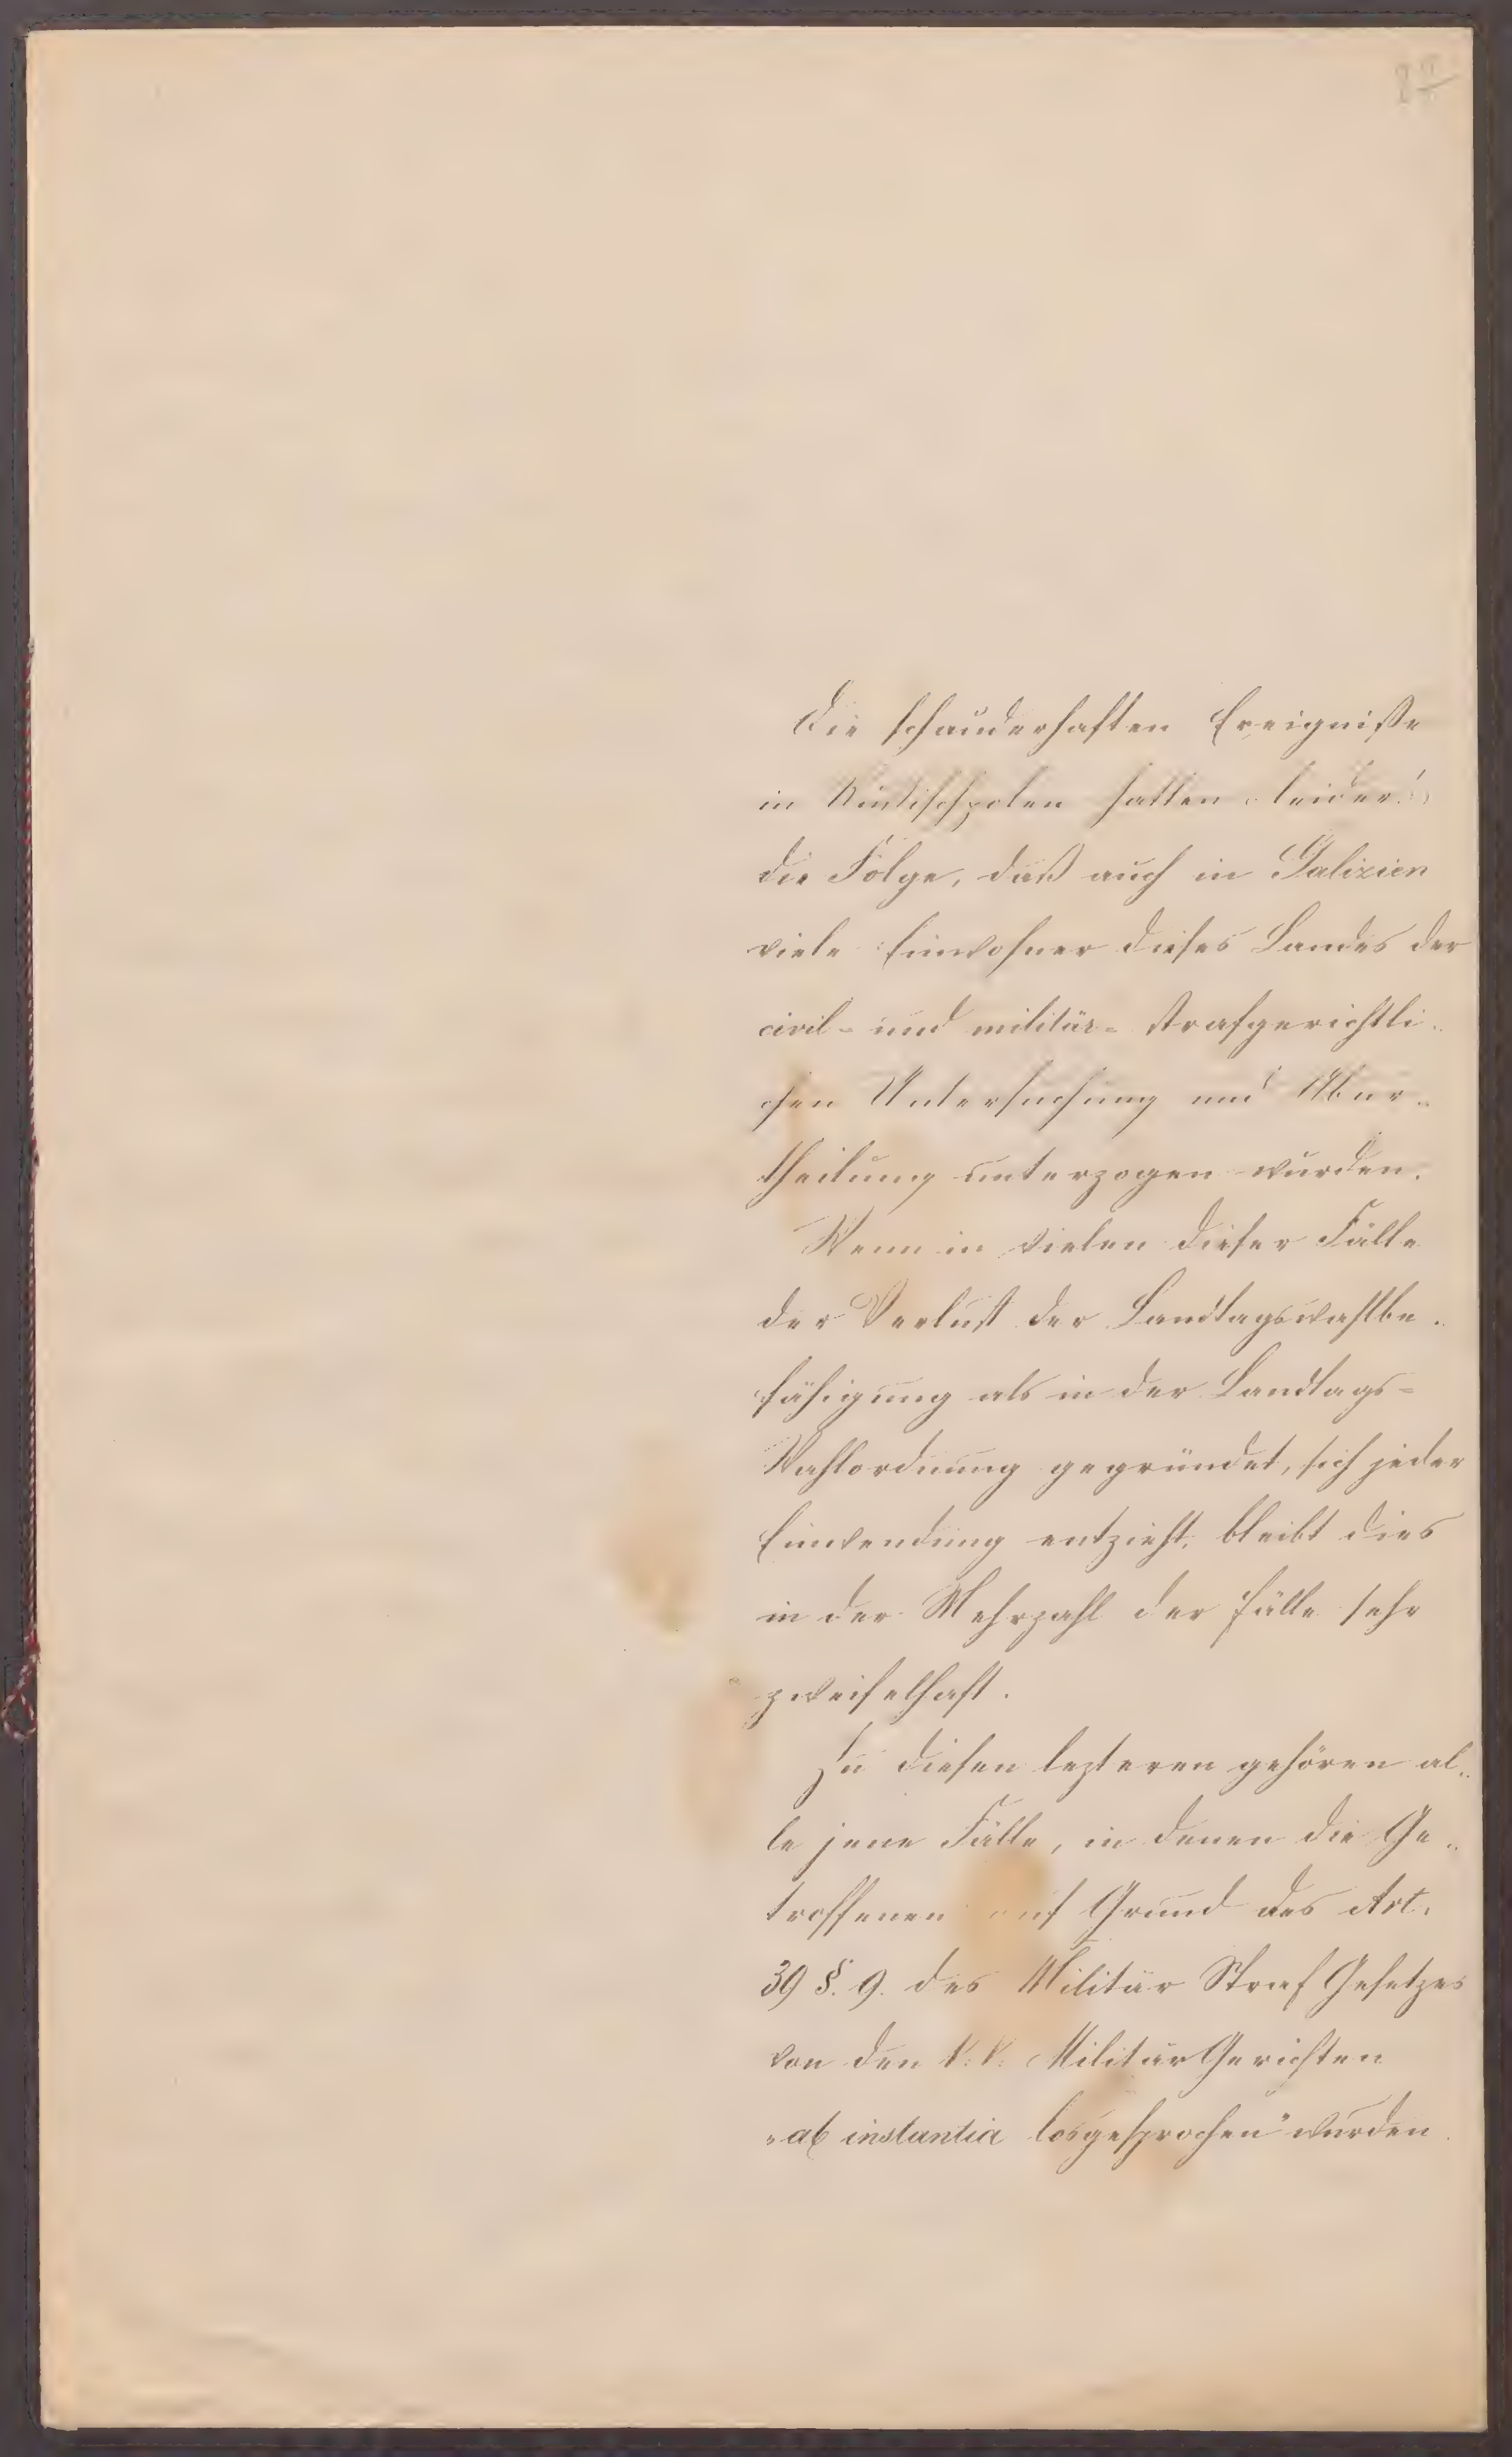 Die schauderhaften Ereigniße
in Russischpolen hatten (leider!)
die Folge, daß auch in Galizien
viele Einwohner dieses Landes der
civil- und militär- strafgerichtli-
chen Untersuchung und Abur-
theilung unterzogen wurden.
Wenn in vielen dieser Fälle
der Verlust der Landtagswahlbe-
fähigung als in der Landtags-
Wahlordnung gegründet, sich jeder
Einwendung entzieht, bleibt dies
in der Mehrzahl der Fälle sehr
zweifelhaft.
Zu diesen lezteren gehören al-
le jene Fälle, in denen die Ge-
troffenen auf Grund des Art.
39 §. 9. des Militär Straf Gesetzes
von den k. k. Militär Gerichten
„ab instantia losgesprochen" wurden.